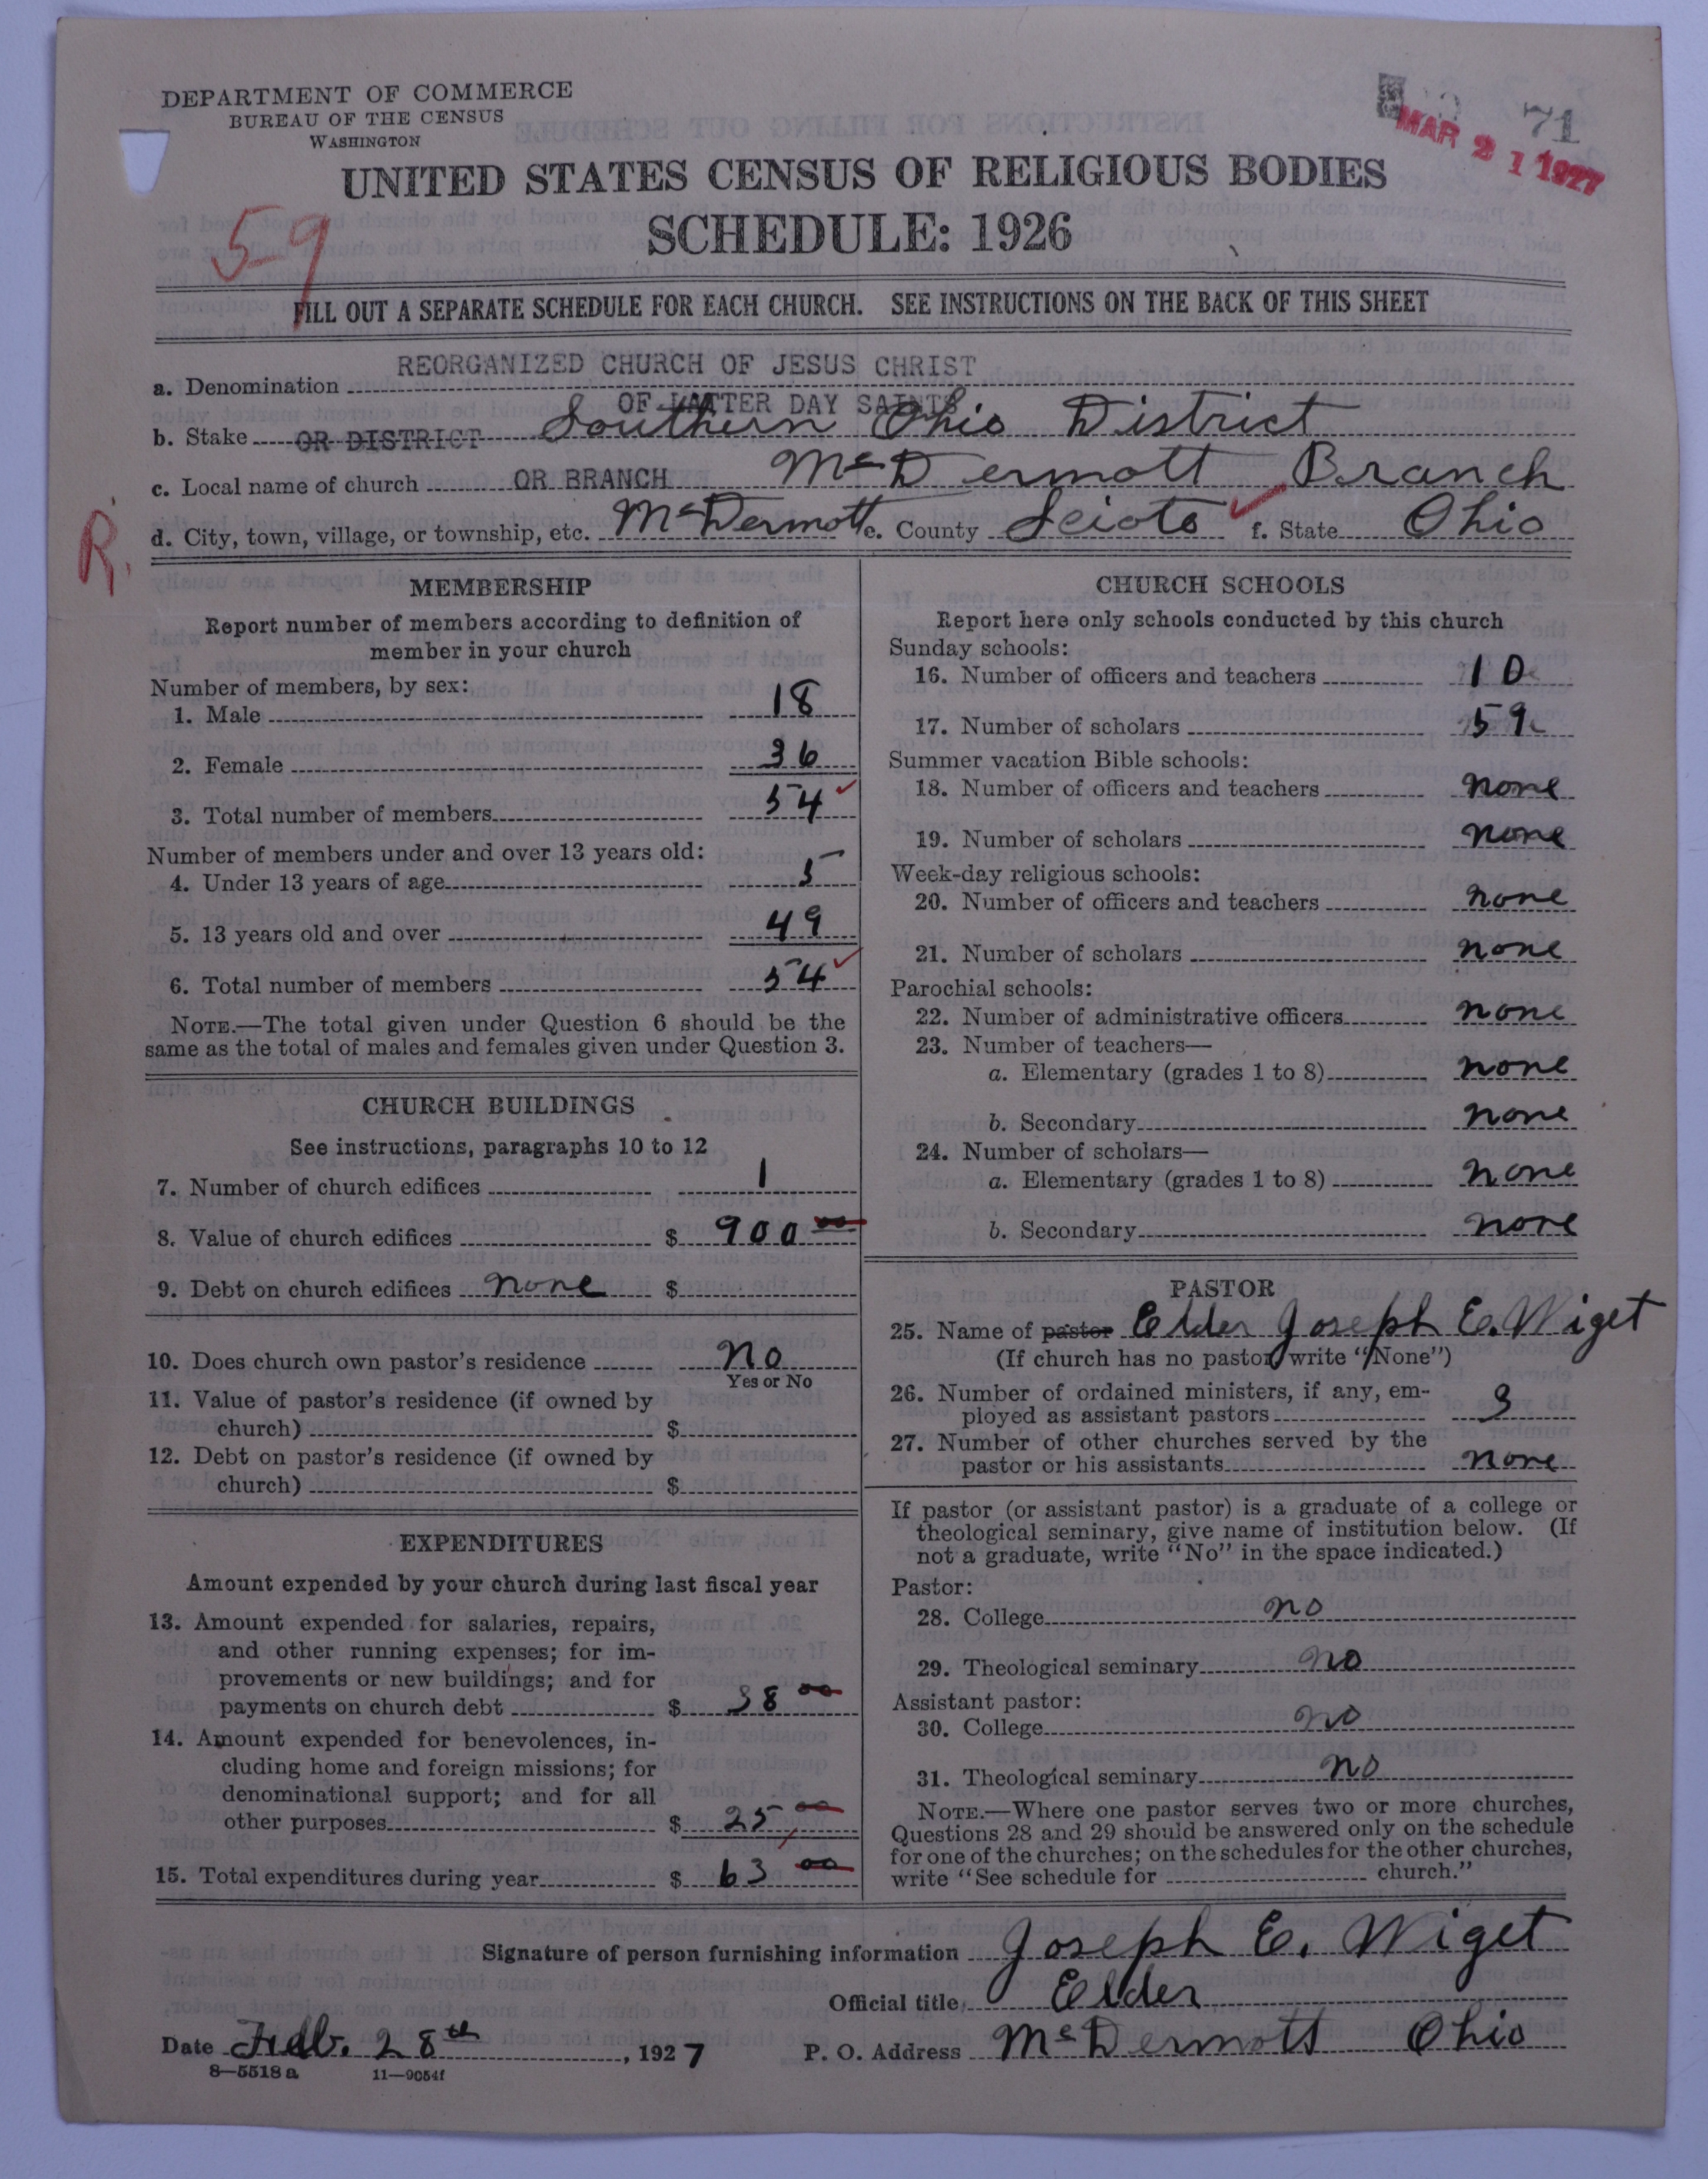 DEPARTMENT OF COMMERCE
BUREAU OF THE CENSUS
WASHINGTON
71
MAR 21 1927
UNITED STATES CENSUS OF RELIGIOUS BODIES
SCHEDULE: 1926
59
FILL OUT A SEPARATE SCHEDULE FOR EACH CHURCH. SEE INSTRUCTIONS ON THE BACK OF THIS SHEET
REORGANIZED CHURCH OF JESUS CHRIST
a. Denomination
OF LATTER DAY SAINTS
b. Stake OR DISTRICT Southern Ohio District
c. Local name of church OR BRANCH McDermott Branch
R.
d. City, town, village, or township, etc. McDermott e. County Scioto f. State Ohio
MEMBERSHIP
Report number of members according to definition of
member in your church
Number of members, by sex:
1. Male 18
2. Female 36
3. Total number of members 54
Number of members under and over 13 years old:
4. Under 13 years of age 5
5. 13 years old and over 49
6. Total number of members 54
NOTE.—The total given under Question 6 should be the
same as the total of males and females given under Question 3.
CHURCH BUILDINGS
See instructions, paragraphs 10 to 12
7. Number of church edifices 1
8. Value of church edifices $ 900 00
9. Debt on church edifices none $
10. Does church own pastor's residence no
Yes or No
11. Value of pastor's residence (if owned by
church) $
12. Debt on pastor's residence (if owned by
church) $
EXPENDITURES
Amount expended by your church during last fiscal year
13. Amount expended for salaries, repairs,
and other running expenses; for im-
provements or new buildings; and for
payments on church debt $ 38 00
14. Amount expended for benevolences, in-
cluding home and foreign missions; for
denominational support; and for all
other purposes $ 25 00
15. Total expenditures during year $ 63 00
CHURCH SCHOOLS
Report here only schools conducted by this church
Sunday schools:
16. Number of officers and teachers 10
17. Number of scholars 59
Summer vacation Bible schools:
18. Number of officers and teachers none
19. Number of scholars none
Week-day religious schools:
20. Number of officers and teachers none
21. Number of scholars none
Parochial schools:
22. Number of administrative officers none
23. Number of teachers—
a. Elementary (grades 1 to 8) none
b. Secondary none
24. Number of scholars—
a. Elementary (grades 1 to 8) none
b. Secondary none
PASTOR
25. Name of pastor Elder Joseph E. Wiget
(If church has no pastor, write "None")
26. Number of ordained ministers, if any, em-
ployed as assistant pastors 3
27. Number of other churches served by the
pastor or his assistants none
If pastor (or assistant pastor) is a graduate of a college or
theological seminary, give name of institution below. (If
not a graduate, write "No" in the space indicated.)
Pastor:
28. College no
29. Theological seminary no
Assistant pastor:
30. College no
31. Theological seminary no
NOTE.—Where one pastor serves two or more churches,
Questions 28 and 29 should be answered only on the schedule
for one of the churches; on the schedules for the other churches,
write "See schedule for church."
Signature of person furnishing information Joseph E. Wiget
Official title Elder
Date Feb. 28th, 1927 P. O. Address McDermott Ohio
8—5518 a 11—9054f